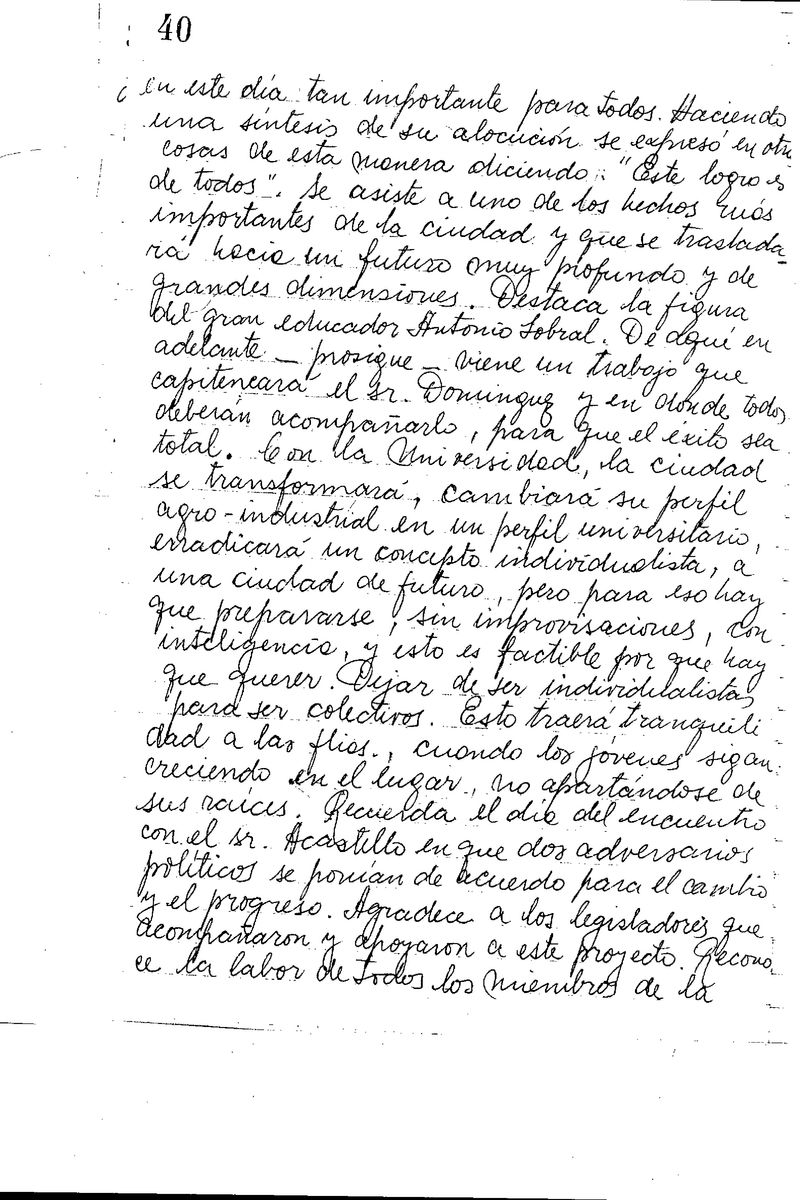 40
en este día tan importante para todos. Haciendo
una síntesis de su alocución se expresó en otr
cosas de esta manera diciendo: "Este logro es
de todos". Se asiste a uno de los hechos más
importantes de la ciudad y que se traslada-
rá hacia un futuro muy profundo y de
grandes dimensiones. Destaca la figura
del gran educador Antonio Sobral. De aquí en
adelante - prosigue - viene un trabajo que
capiteneará el sr. Dominguez y en donde todos
deberán acompañarlo, para que el éxito sea
total. Con la Universidad, la ciudad
se transformará, cambiará su perfil
agro-industrial en un perfil universitario,
erradicará un concepto individualista, a
una ciudad de futuro, pero para eso hay
que prepararse, sin improvisaciones, con
inteligencia, y esto es factible por que hay
que querer. Dejar de ser individualistas
para ser colectivos. Esto traerá tranquili
dad a las flias., cuando los jóvenes sigan
creciendo en el lugar, no apartándose de
sus raíces. Recuerda el día del encuentro
con el sr. Acastello en que dos adversarios
políticos se ponían de acuerdo para el cambio
y el progreso. Agradece a los legisladores que
acompañaron y apoyaron a este proyecto. Recono
ce la labor de todos los miembros de la